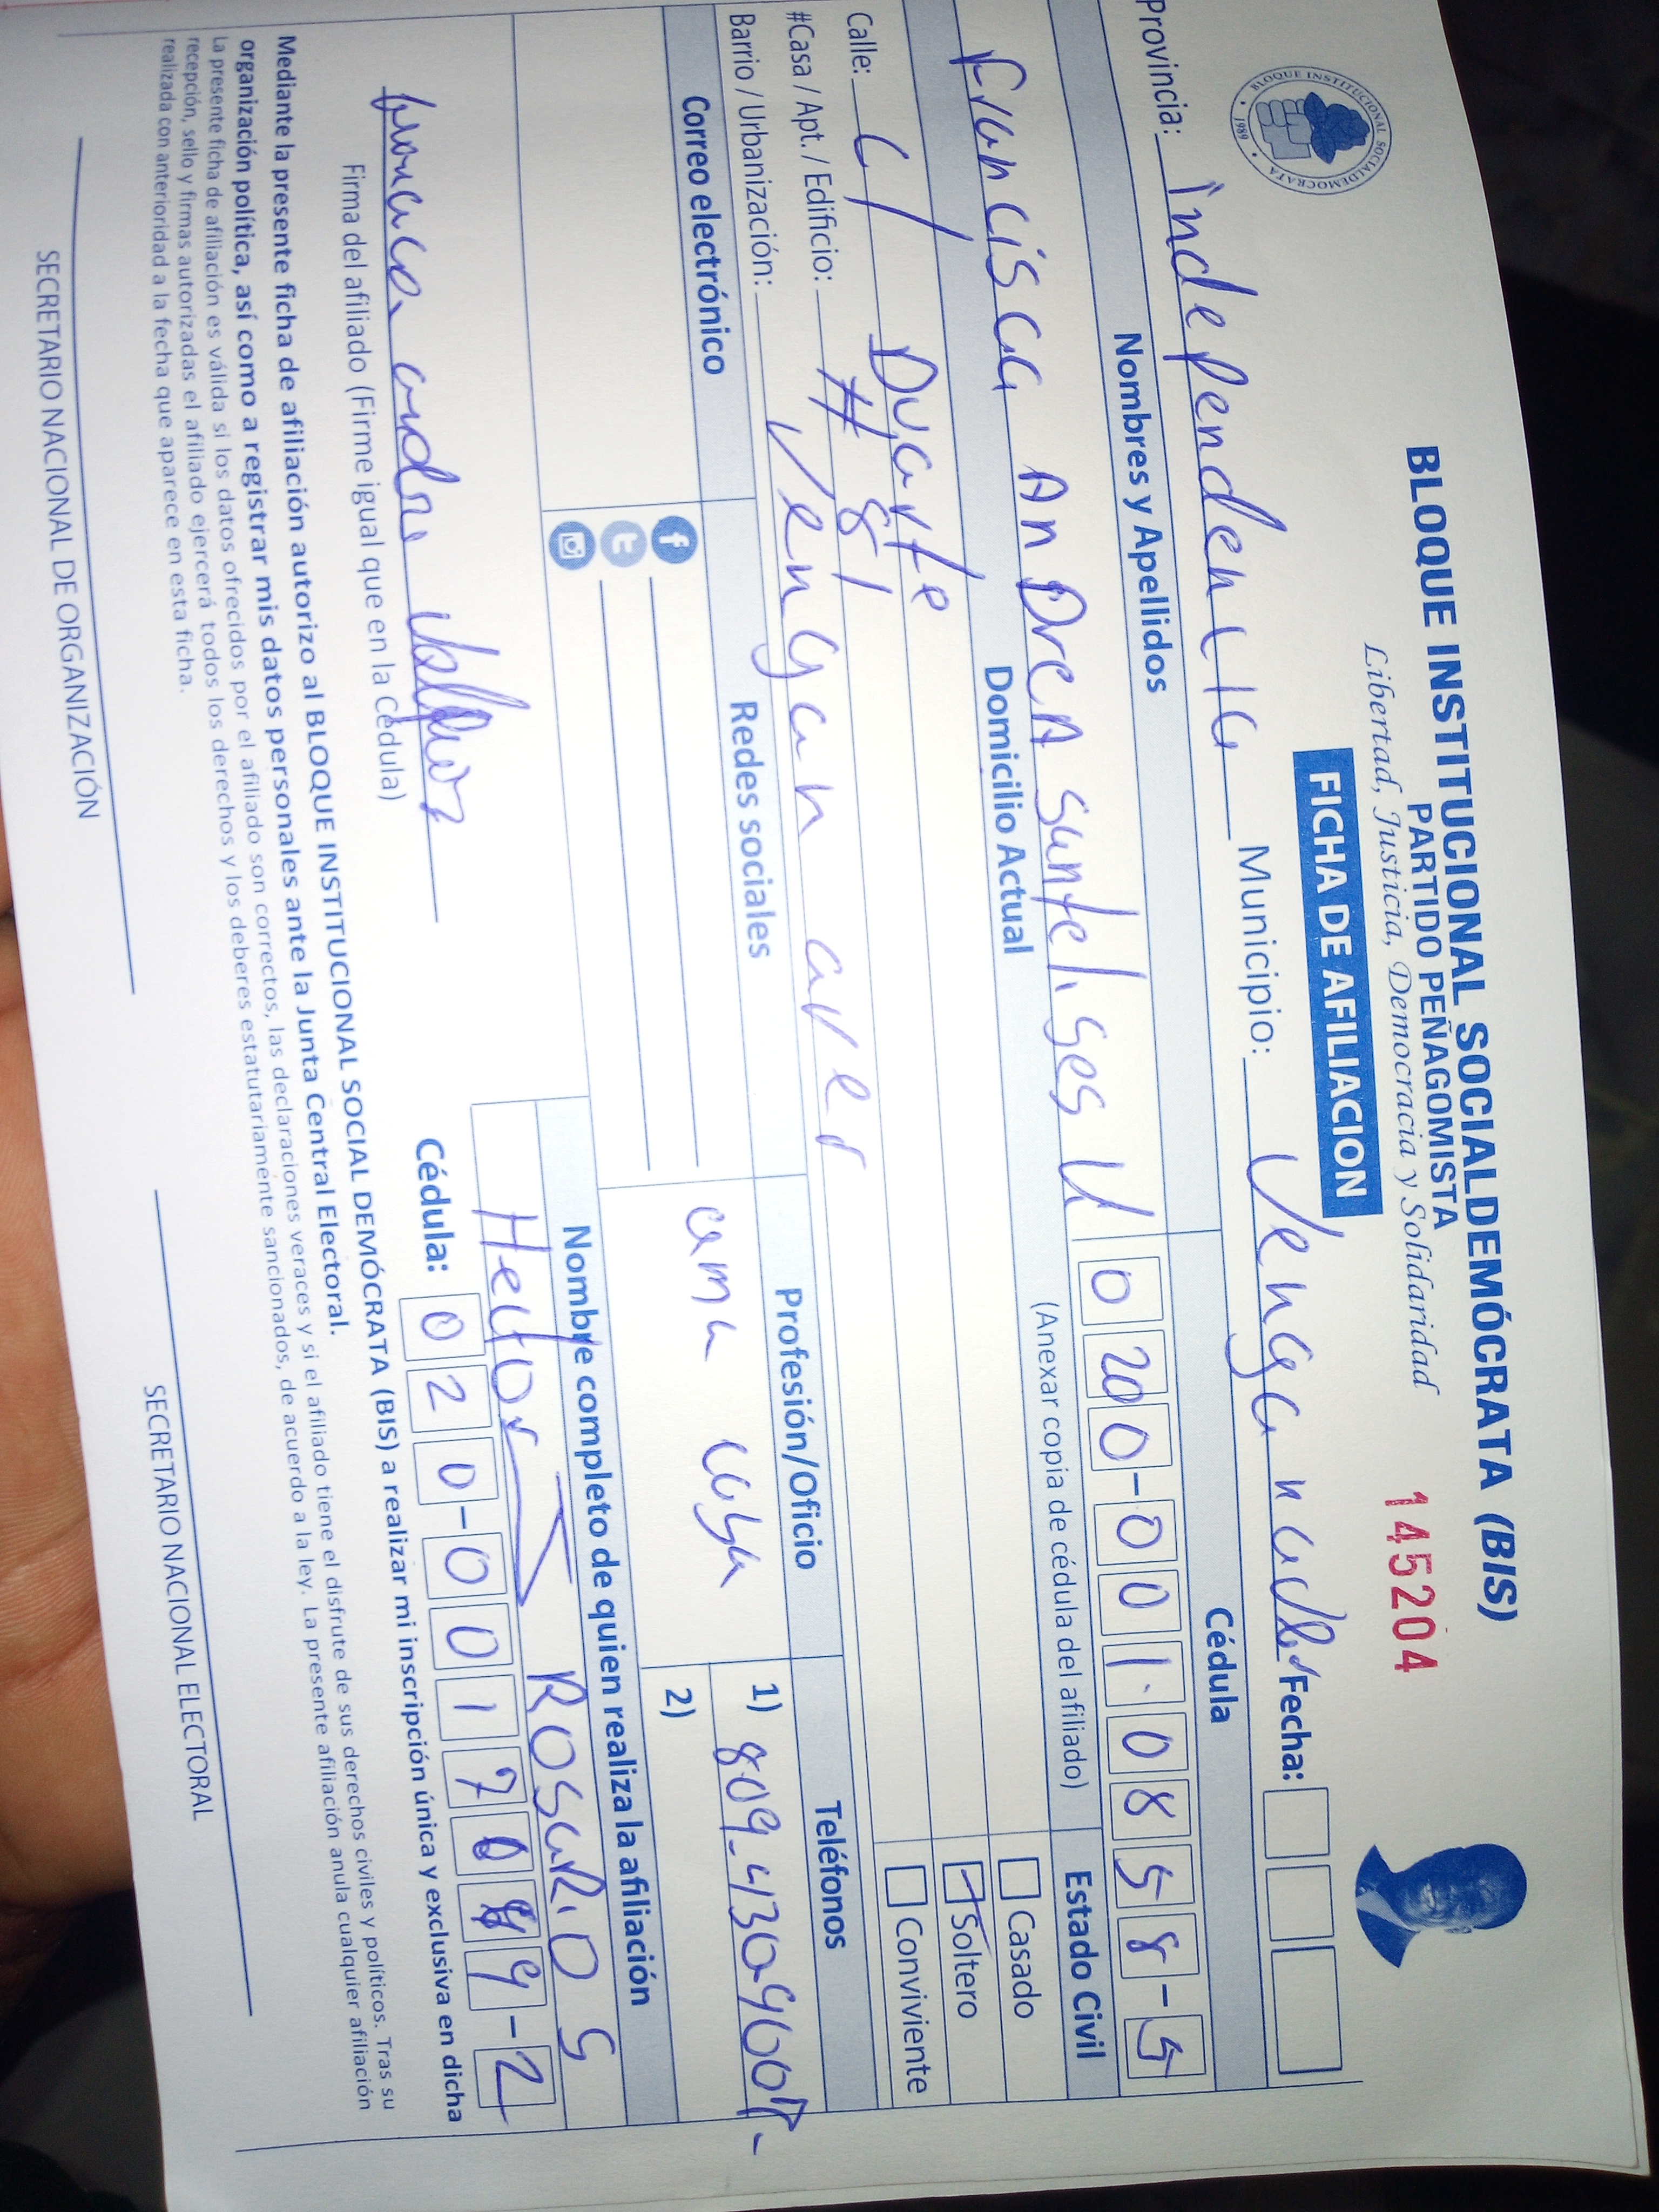 BLOQUE INSTITUCIONAL SOCIALDEMÓCRATA (BIS)
PARTIDO PEÑAGOMISTA
Libertad, Justicia, Democracia y Solidaridad
145204
BLOQUE INSTITUCIONAL SOCIALDEMOCRATA
1989
FICHA DE AFILIACION
Provincia: independencia Municipio: Fecha:
Nombres y Apellidos Cédula
Francisca AnDreA 020-0010858-5
Domicilio Actual (Anexar copia de cédula del afiliado) Estado Civil
Calle: C/ Duarte
Casado
#Casa / Apt. / Edificio: # 81
Soltero
Barrio / Urbanización:
Conviviente
Correo electrónico Redes sociales Profesión/Oficio Teléfonos
1) 809-430
2)
Nombre completo de quien realiza la afiliación
Hector ROSARIO
Firma del afiliado (Firme igual que en la Cédula)
Cédula: 020-0017
Mediante la presente ficha de afiliación autorizo al BLOQUE INSTITUCIONAL SOCIAL DEMÓCRATA (BIS) a realizar mi inscripción única y exclusiva en dicha
organización política, así como a registrar mis datos personales ante la Junta Central Electoral.
La presente ficha de afiliación es válida si los datos ofrecidos por el afiliado son correctos, las declaraciones veraces y si el afiliado tiene el disfrute de sus derechos civiles y políticos. Tras su
recepción, sello y firmas autorizadas el afiliado ejercerá todos los derechos y los deberes estatutariamente sancionados, de acuerdo a la ley. La presente afiliación anula cualquier afiliación
realizada con anterioridad a la fecha que aparece en esta ficha.
SECRETARIO NACIONAL DE ORGANIZACIÓN SECRETARIO NACIONAL ELECTORAL